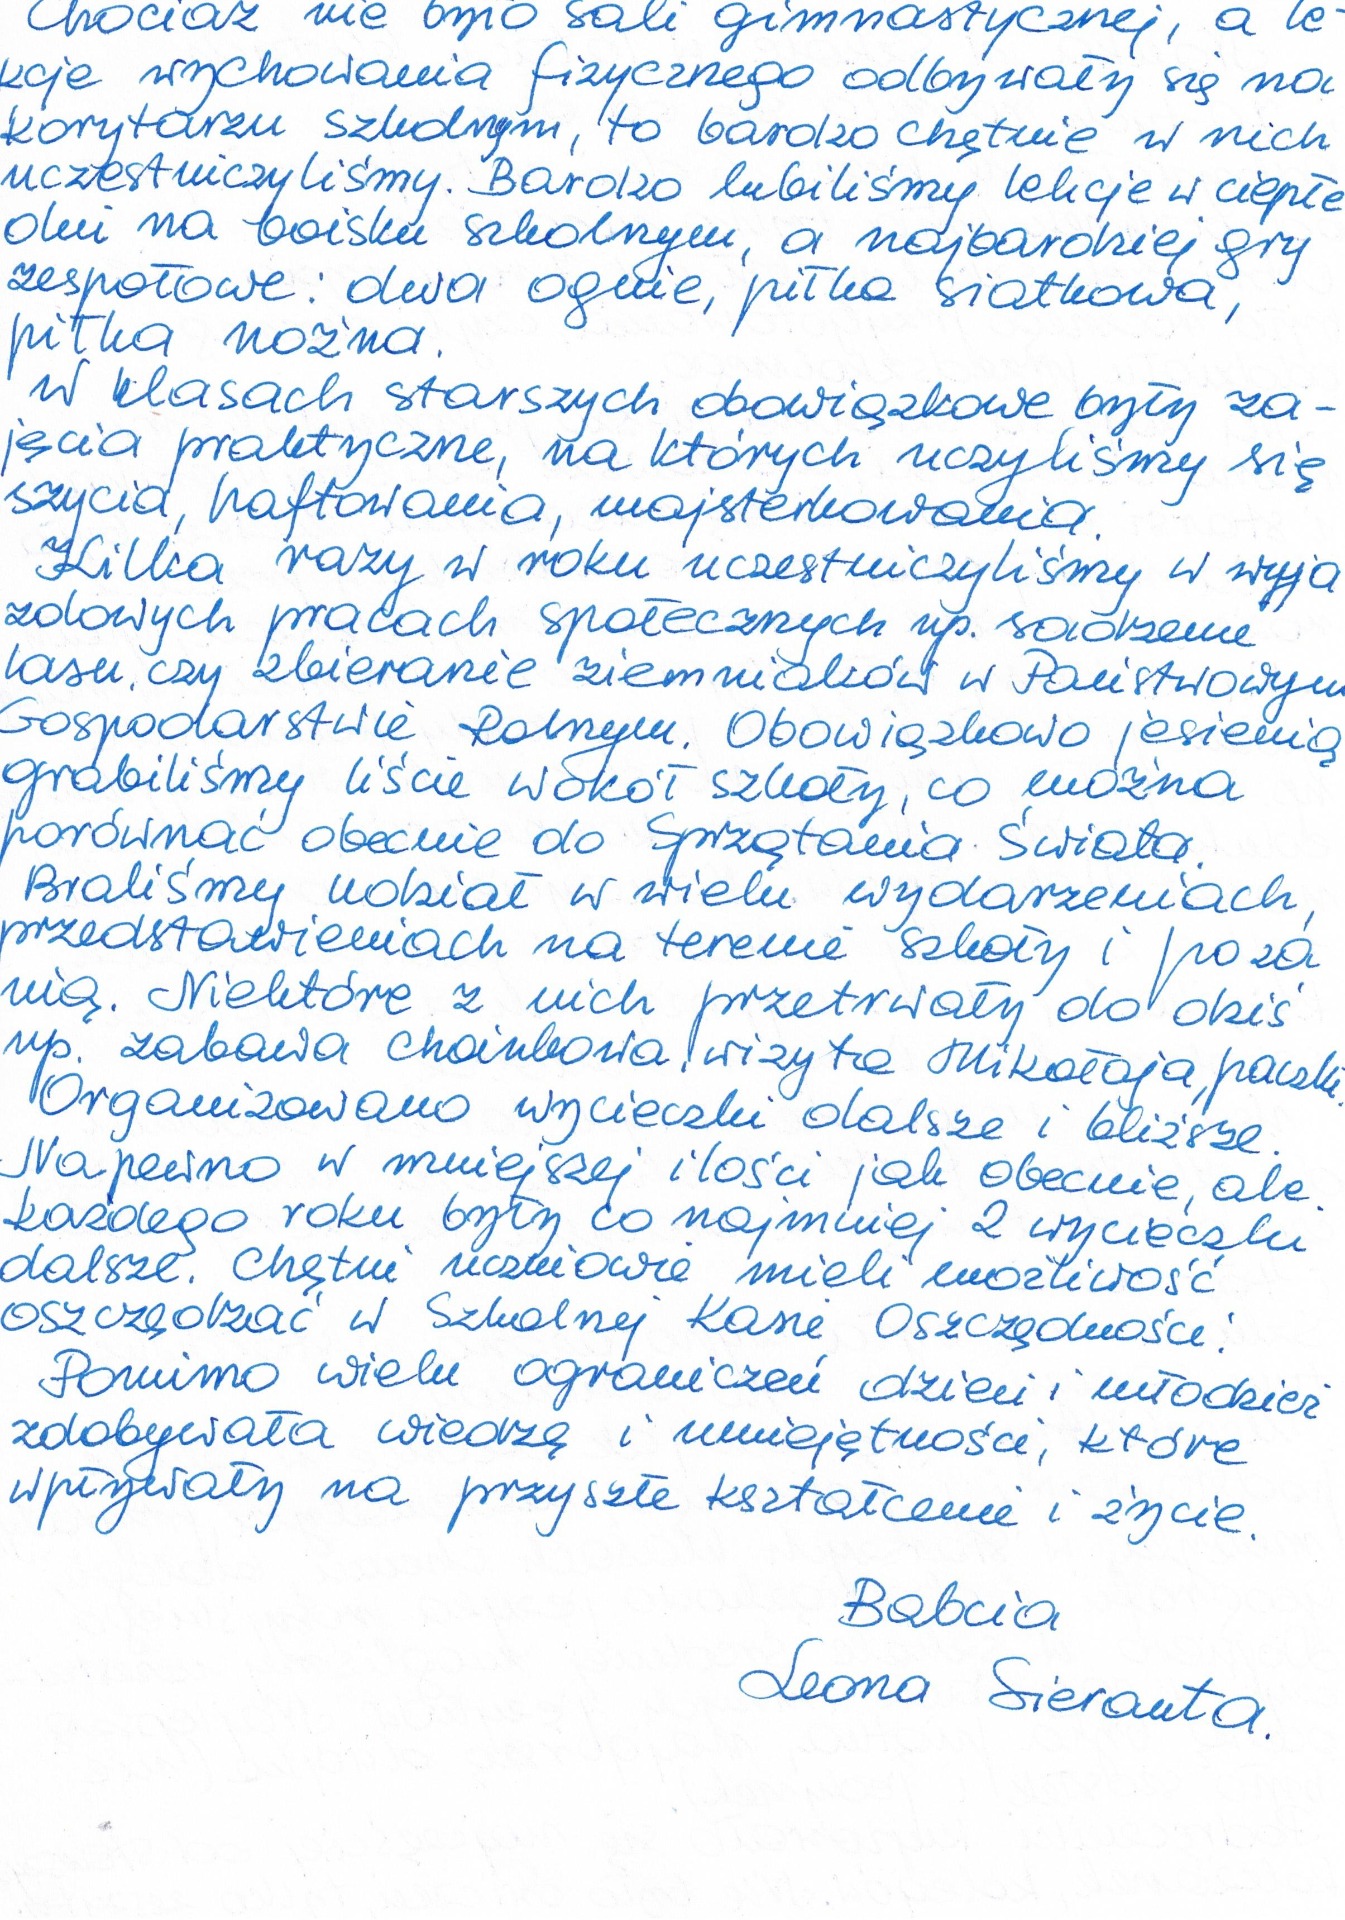 Chociaż nie było sali gimnastycznej, a le-
kcje wychowania fizycznego odbywały się na
korytarzu szkolnym, to bardzo chętnie w nich
uczestniczyliśmy. Bardzo lubiliśmy lekcje w ciepłe
dni na boisku szkolnym, a najbardziej gry
zespołowe: dwa ognie, piłka siatkowa,
piłka nożna.
W klasach starszych obowiązkowe były za-
jęcia praktyczne, na których uczyliśmy się
szycia, haftowania, majsterkowania.
Kilka razy w roku uczestniczyliśmy w wyja
zdowych pracach społecznych np. sadzenie
lasu, czy zbieranie ziemniaków w Państwowym
Gospodarstwie Rolnym. Obowiązkowo jesienią
grabiliśmy liście wokół szkoły, co można
porównać obecnie do Sprzątania Świata.
Braliśmy udział w wielu wydarzeniach,
przedstawieniach na terenie szkoły i poza
nią. Niektóre z nich przetrwały do dziś
np. zabawa choinkowa, wizyta Mikołaja, paczki.
Organizowano wycieczki dalsze i bliższe.
Na pewno w mniejszej ilości jak obecnie, ale
każdego roku były co najmniej 2 wycieczki
dalsze. Chętni uczniowie mieli możliwość
oszczędzać w Szkolnej Kasie Oszczędności.
Pomimo wielu ograniczeń dzieci i młodzież
zdobywała wiedzę i umiejętności, które
wpływały na przyszłe kształcenie i życie.
Babcia
Leona Sieranta.